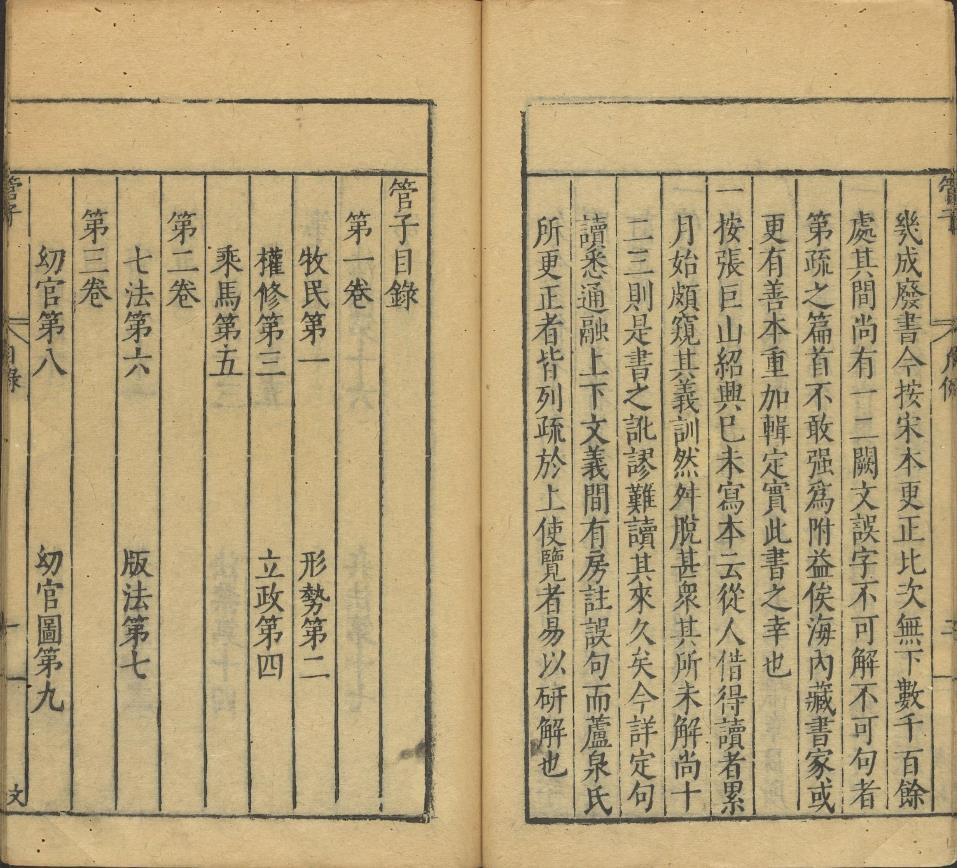 幾成廢書今按宋本更正比次無下數千百餘
處其間尚有一二闕文誤字不可解不可句者
第疏之篇首不敢强爲附益俟海內藏書家或
更有善本重加輯定實此書之幸也
一按張巨山紹興已未寫本云從人借得讀者累
月始頗窺其義訓然舛脫甚衆其所未解尚十
二三則是書之訛謬難讀其來久矣今詳定句
讀悉通融上下文義間有房註誤句而蘆泉氏
所更正者皆列疏於上使覽者易以研解也
管子目錄
第一卷
牧民第一 形勢第二
權修第三 立政第四
乘馬第五
第二卷
七法第六 版法第七
第三卷
幼官第八 幼官圖第九
管子 目錄 一 文